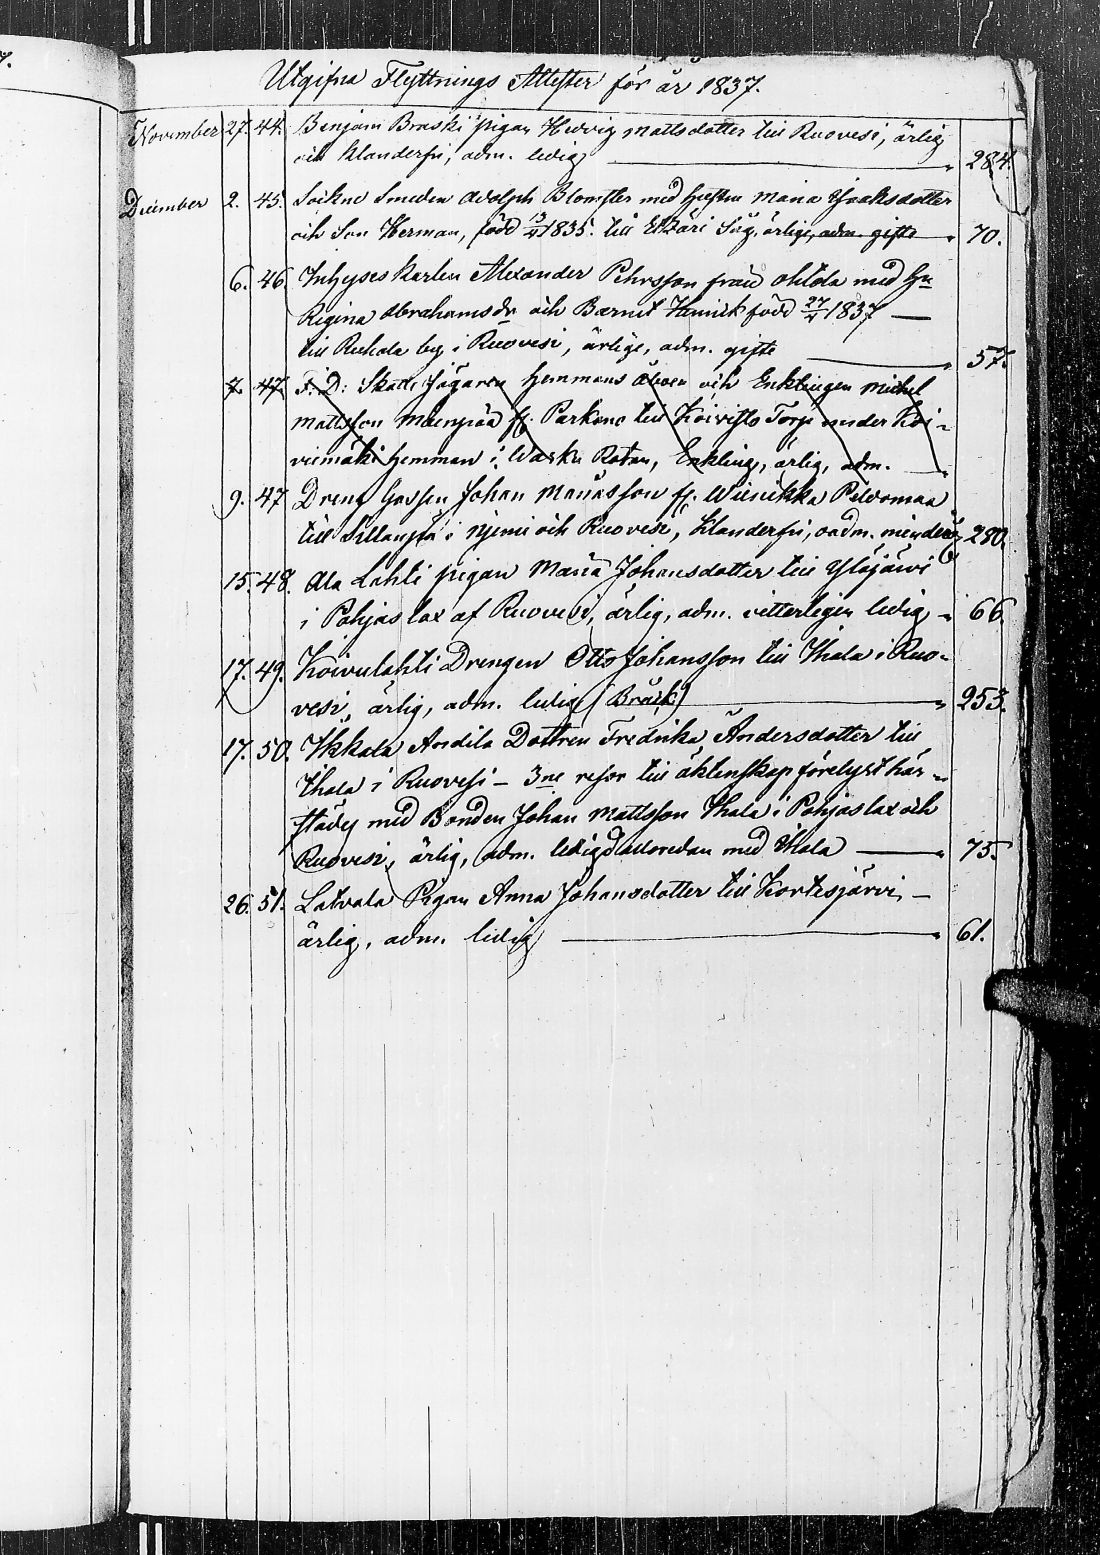 7.
Utgifna Flyttnings Attester för år 1837.
November 27. 44. Benjam Braski pigan Hedvig Mattsdotter till Ruovesi, ärlig
och klanderfri, adm. ledig 284.
December 2. 45. Sockne Smeden Adolph Blomster med Hustru Maria Isaksdotter
och Son Herman, född 1835. till Etzäri Säg, ärlige, adm. gifte 70.
6. 46. Inhyses karlen Alexander Pehrsson från Ohtola med Hu
Regina Abrahamsdr och Barnet Henrick född 27/4 1837
till Ruhala by i Ruovesi, ärlige, adm. gifte 57.
7. 47. F. D. Skatte Jägaren Hemmans och Enklingen Michel
Mattsson Mäenpää fr. Parkano till Koivisto Torp under Koi-
vumäki hemman i Rotan, Enkling, ärlig, adm.
9. 47. Dreng Gossen Johan fr. 
till Sillanpä i och Ruovesi, klanderfri, oadm. minderårig 280.
15. 48. Ala Lahti pigan Maria Johansdotter till Yläjärvi
i Pohjaslax af Ruovesi, ärlig, adm. vitterligen ledig 66.
17. 49. Koivulahti Drengen Otto Johansson till Ihala i Ruo-
vesi, ärlig, adm. ledig (Bräck) 253.
17. 50. Ikkala Andila Dottren Fredrika Andersdotter till
Ihala i Ruovesi - 3ne resor till äktenskap förelyst här-
städes med Bonden Johan Mattsson Ihala i Pohjaslax och
Ruovesi, ärlig, adm. ledig alloredan med Ihala 75.
26. 51. Latvala Pigan Anna Johansdotter till Kortesjärvi -
ärlig, adm. ledig 61.